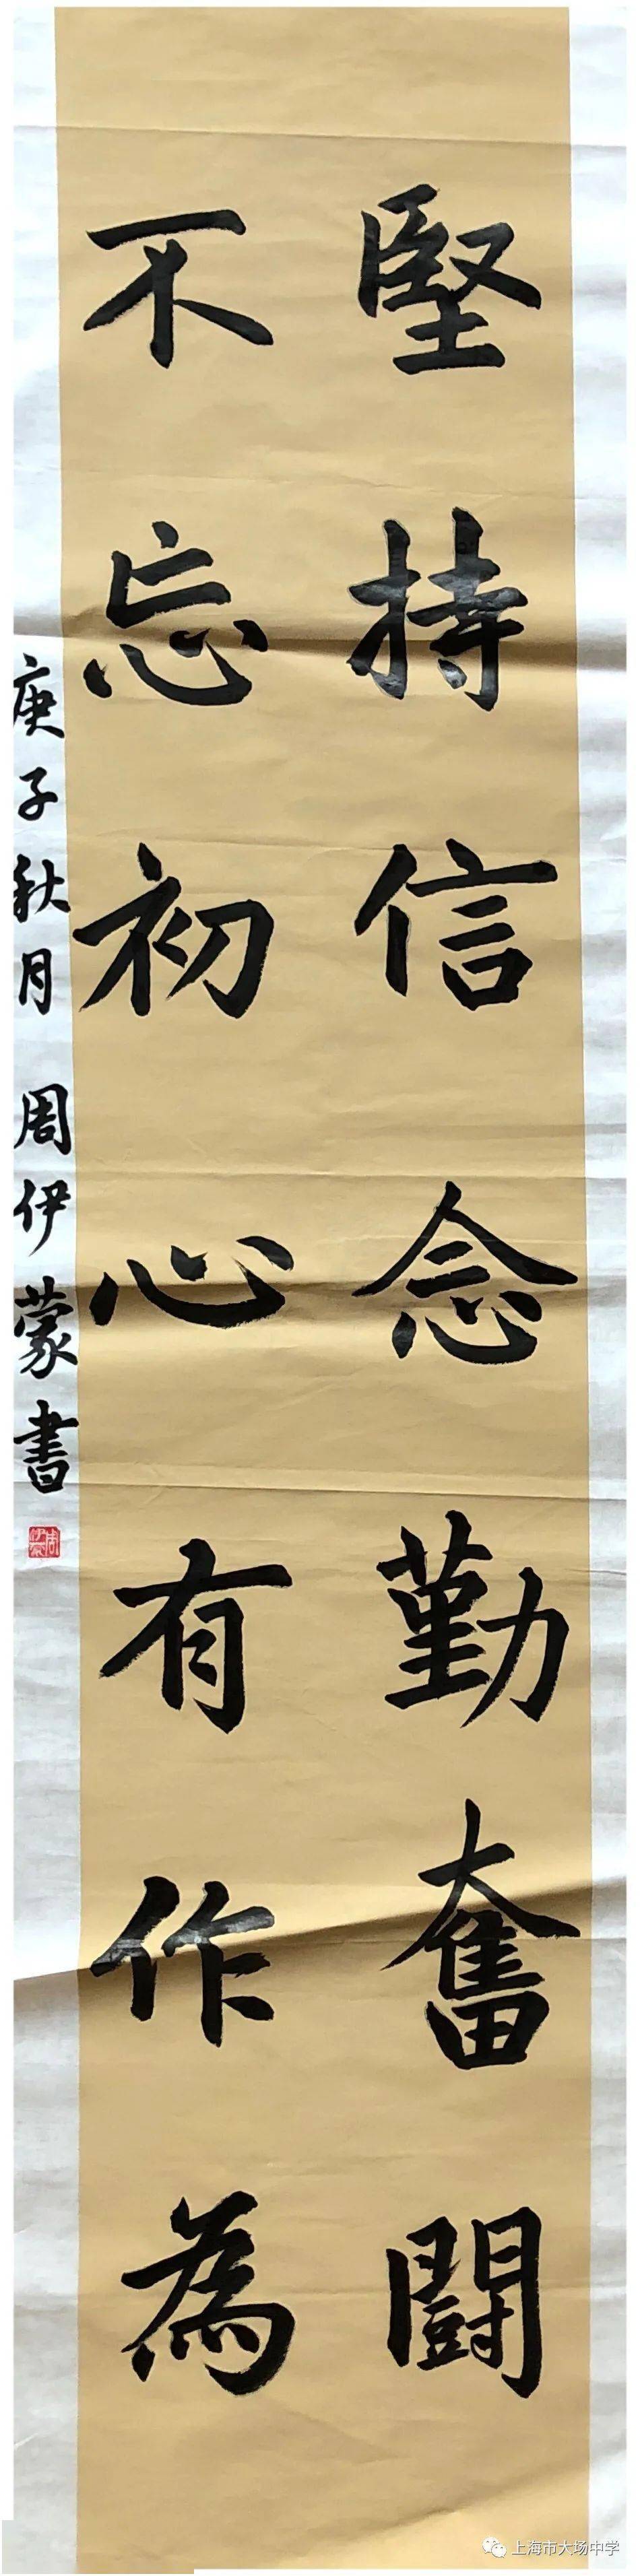 堅持信念勤奮鬪
不忘初心有作為
庚子秋月 周伊蒙書
周伊蒙
上海市大场中学